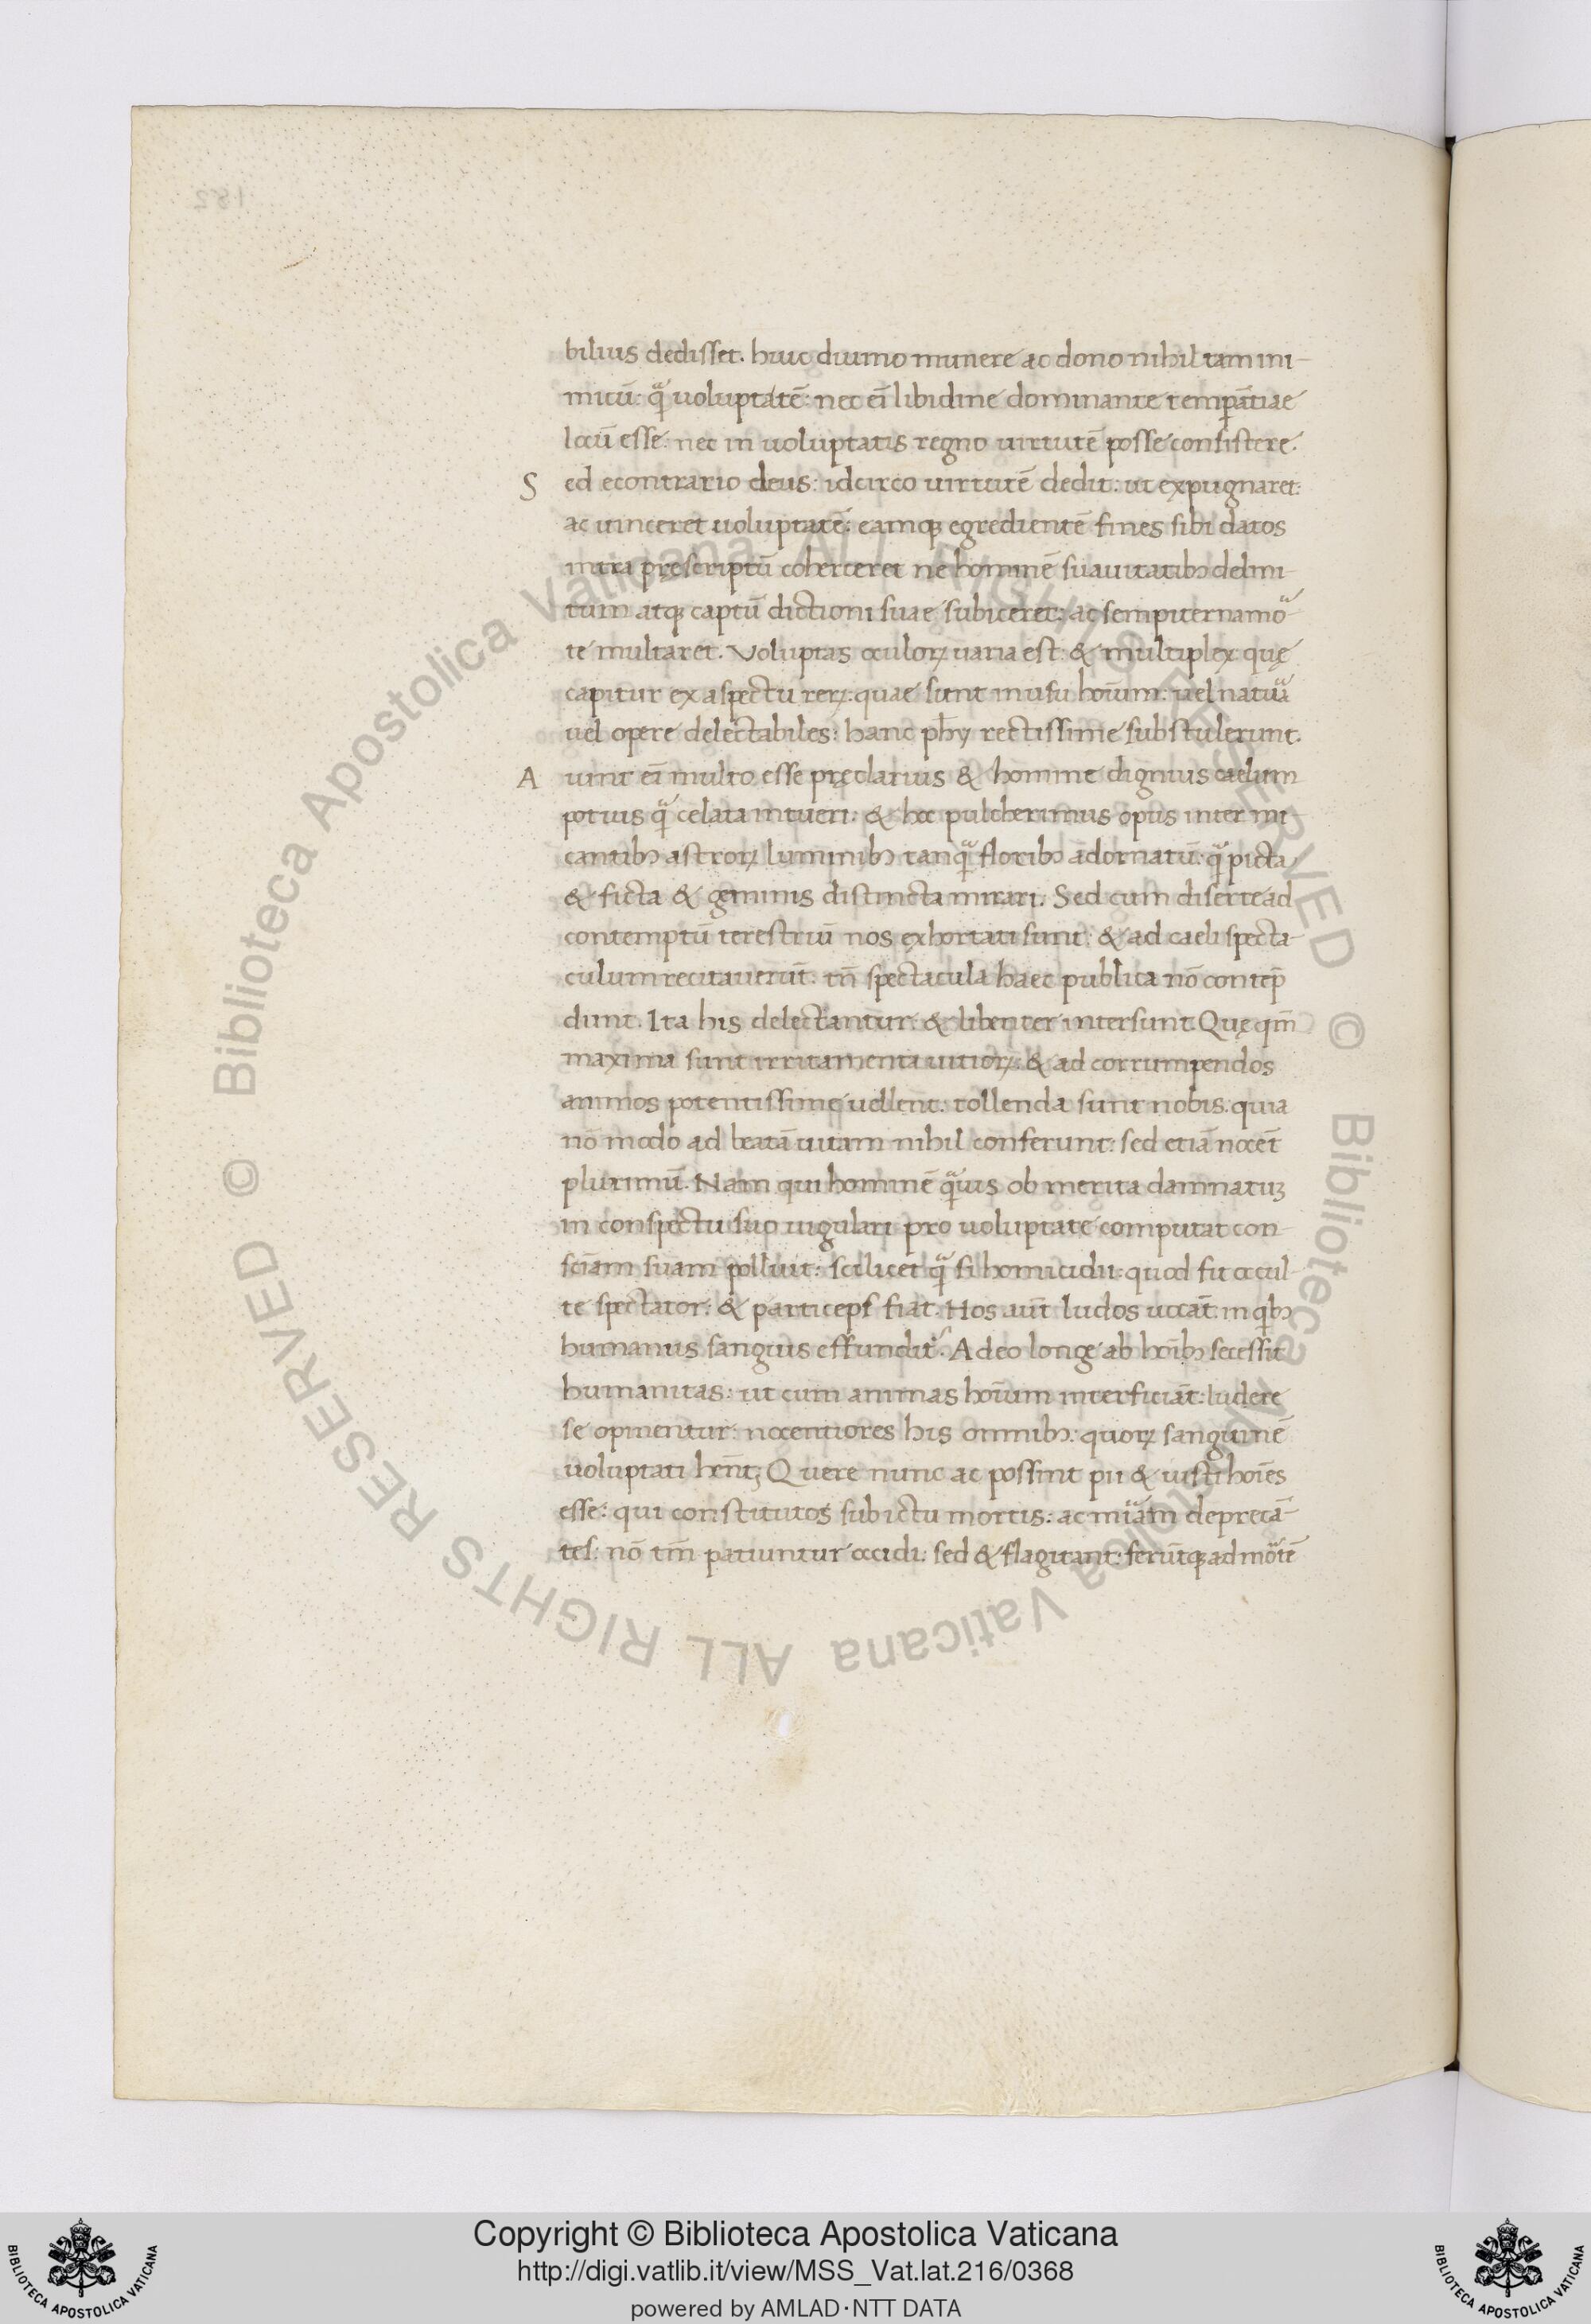 bilius dedisset. huic diuino munere ac dono nihil tam ini-
micū: qͣ uoluptatē: nec eī libidine dominante temp̄atiae
locū esse: nec in uoluptatis regno uirtutē posse consistere.
S ed econtrario deus: idcirco uirtutē dedit: ut expugnaret:
ac uinceret uoluptatē: eamqꝫ egredientē fines sibi datos
intra pręscriptū coherceret ne hominē suauitatibꝫ delini-
tum atqꝫ captū dictioni suae subiceret: ac sempiterna mo
te multaret. Voluptas oculoꝝ uaria est: & multiplex quę
capitur ex aspectu reꝝ: quae sunt in usu hoīum: uel natuͣ
uel opere delectabiles: hanc phy rectissime substulerunt.
A uint eī multo esse pręclarius & homine dignius caelum
potius qͣ celata intueri: & hoc pulcherimus opus inter mi-
cantibꝫ astroꝝ luminibꝫ tanqͣ floribꝫ adornatū: qͣ picta
& ficta & gemmis distincta mirari. Sed cum diserte ad
contemptū terestriū nos exhortati sunt: & ad caeli specta-
culum recitauerūt: tn̄ spectacula haec publica nō contēp
dunt. Ita his delectantur: & libenter intersunt. Quę qm̄
maxima sunt irritamenta uitioꝝ: & ad corrumpendos
animos potentissime uellent: tollenda sunt nobis: quia
nō modo ad beatā uitam nihil conferunt: sed etiā nocēt
plurimū. Nam qui hominē qͣuis ob merita damnatuꝫ
in conspectu suo iugulari pro uoluptate computat con-
sciam suam polluit: scilicet qͣ si homicidii: quod fit occul-
te spectator: & particeps fiat. Hos .uīt ludos uocāt: in qibꝫ
humanus sanguis effundit̃. Adeo longe ab hoībꝫ secessit
humanitas: ut cum animas hoīum interficiāt: ludere
se opinentur: nocentiores his omnibꝫ: quoꝝ sanguinē
uoluptati hēnt; Q uere nunc ac possint pii & iusti hoīes
esse: qui constitutos sub ictu mortis: ac mīam deprecā-
tes: nō tm̄ patiuntur occidi: sed & flagitant: ferūtqꝫ ad mōtē
Copyright © Biblioteca Apostolica Vaticana
http://digi.vatlib.it/view/MSS_Vat.lat.216/0368
powered by AMLAD·NTT DATA
BIBLIOTECA APOSTOLICA VATICANA
BIBLIOTECA APOSTOLICA VATICANA
© Biblioteca Apostolica Vaticana ALL RIGHTS RESERVED
© Biblioteca Apostolica Vaticana ALL RIGHTS RESERVED